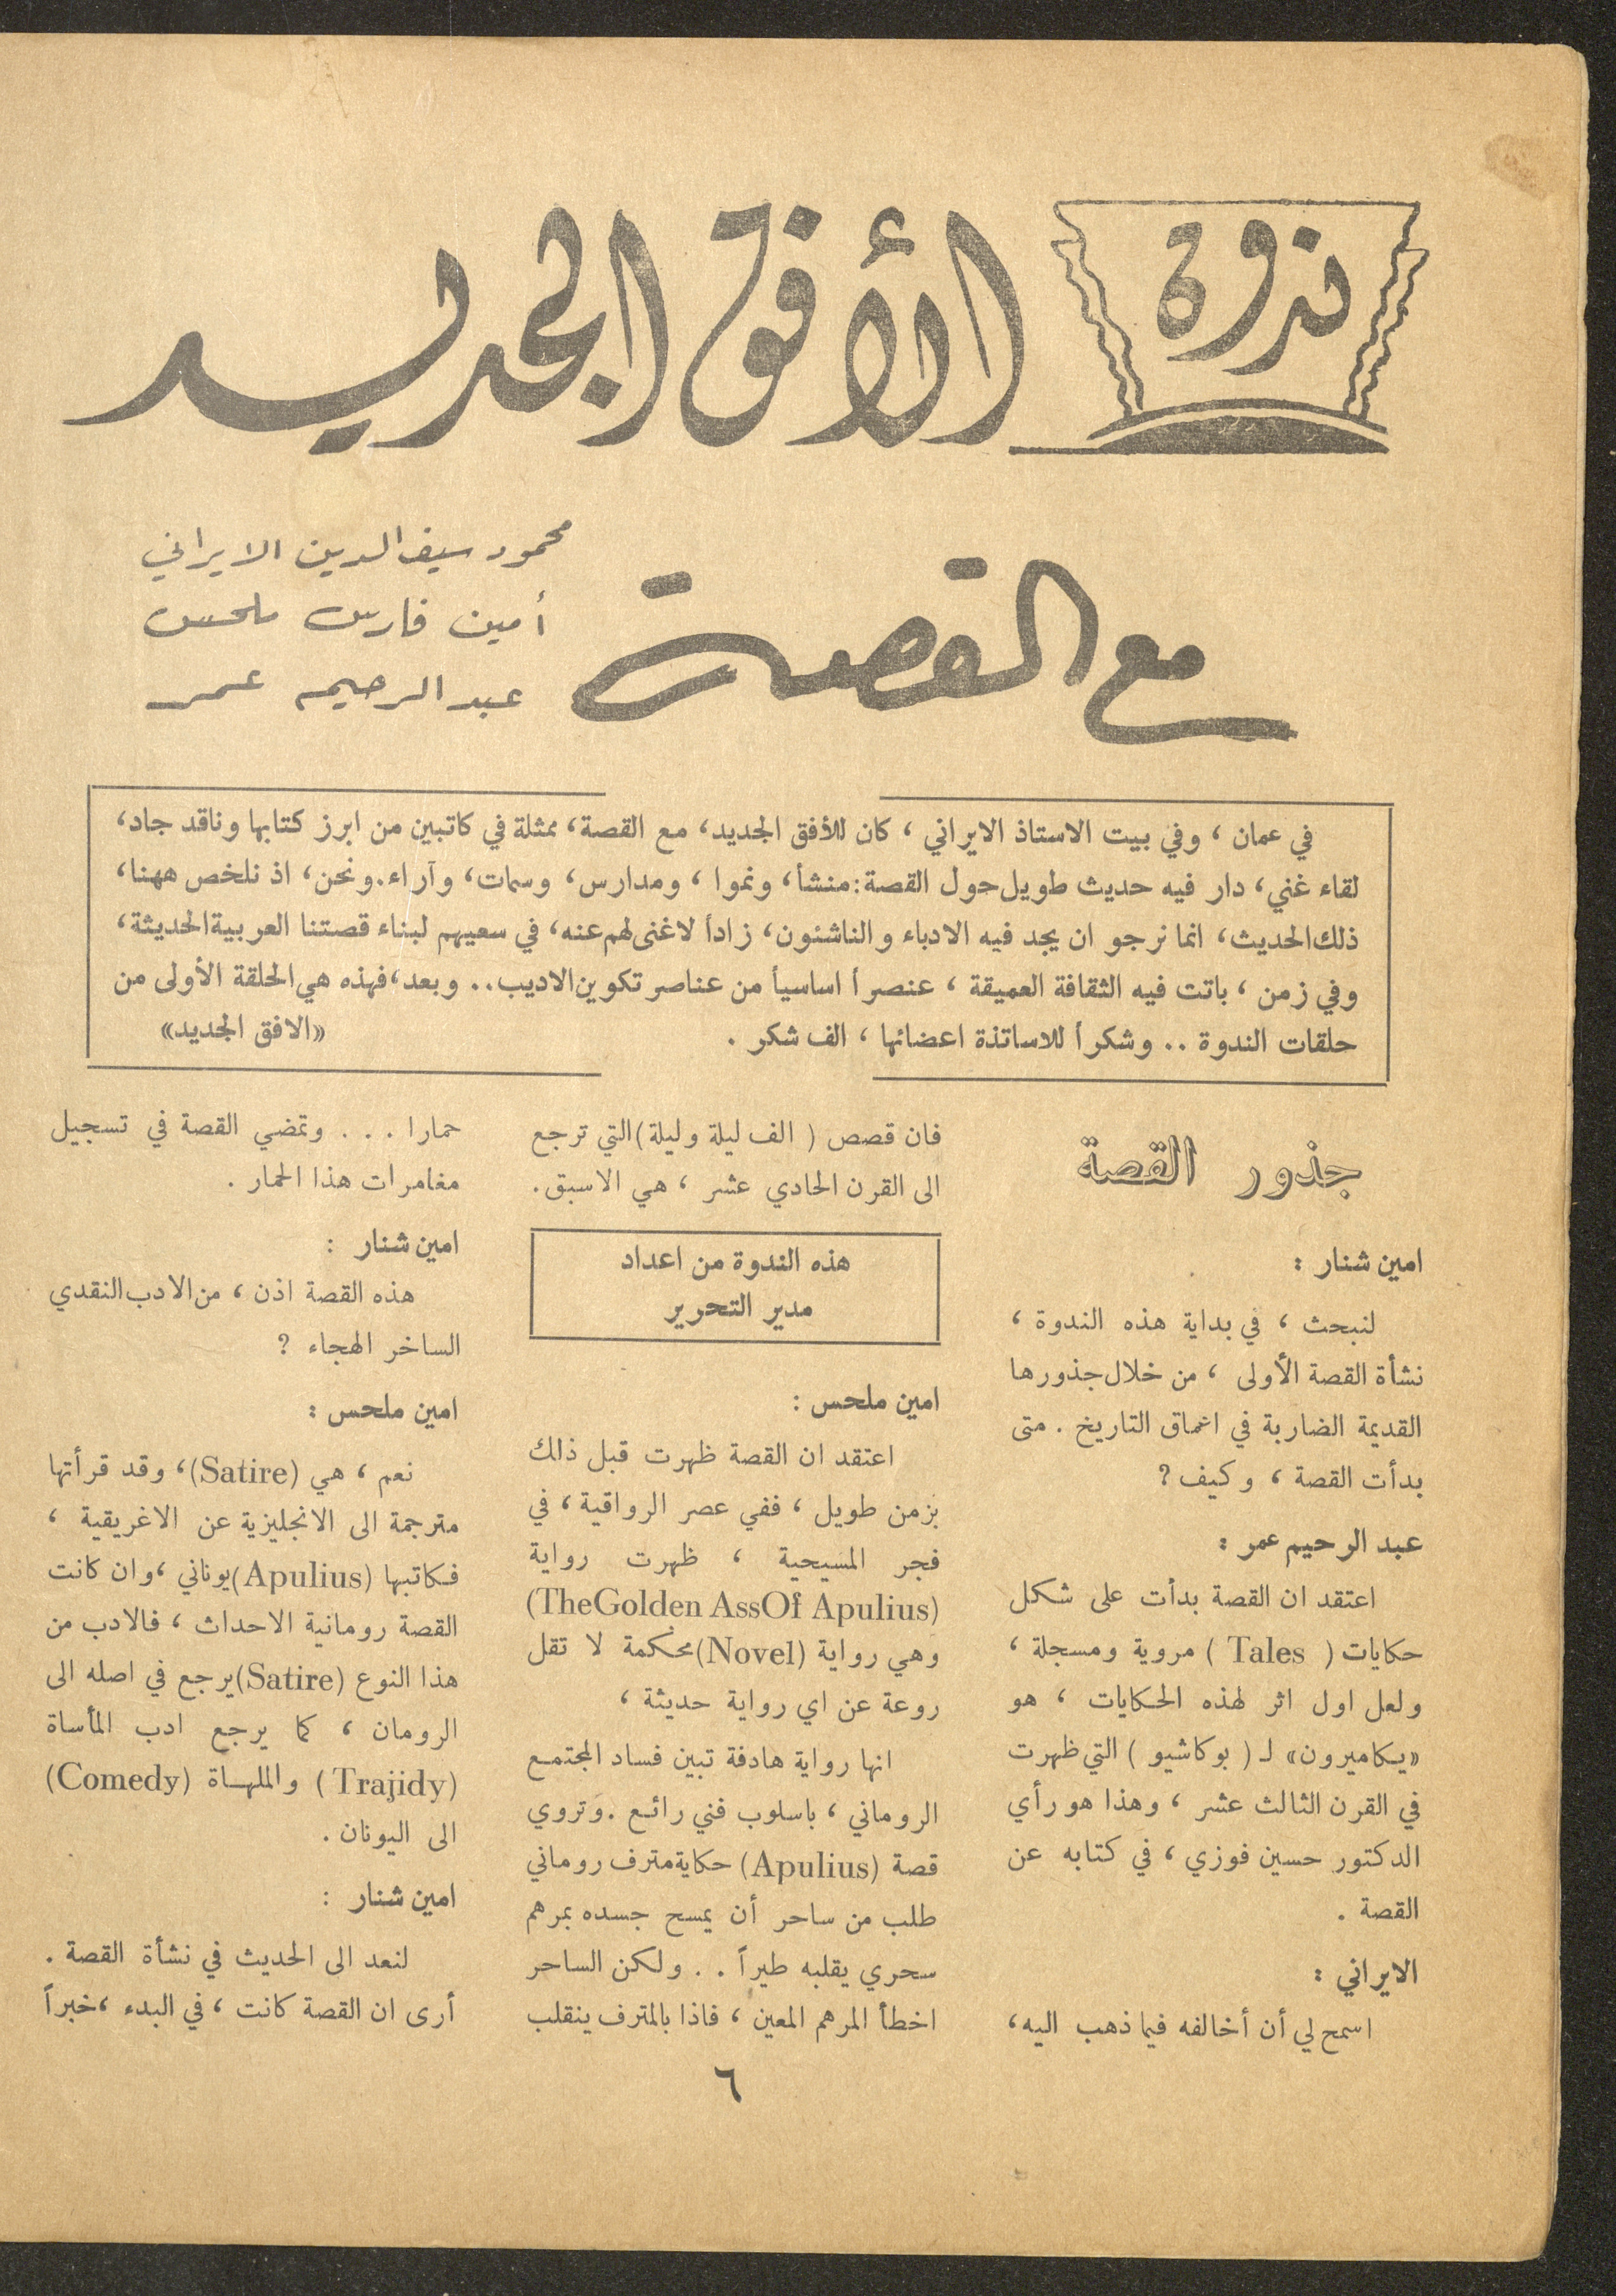 ندوة
الأفق الجديد
مع القصة
محمود سيف الدين الايراني
أمين فارس ملحس
عبد الرحيم عمر
في عمان ، وفي بيت الاستاذ الايراني ، كان للأفق الجديد، مع القصة، ممثلة في كاتبين من ابرز كتابها وناقد جاد،
لقاء غني، دار فيه حديث طويل حول القصة: منشأ، ونموا ، ومدارس، وسمات، وآراء. ونحن، اذ نلخص ههنا،
ذلك الحديث، انما نرجو ان يجد فيه الادباء والناشئون، زاداً لاغنى لهم عنه، في سعيهم لبناء قصتنا العربية الحديثة،
وفي زمن ، باتت فيه الثقافة العميقة ، عنصراً اساسياً من عناصر تكوين الاديب.. وبعد، فهذه هي الحلقة الأولى من
حلقات الندوة .. وشكراً للاساتذة اعضائها ، الف شكر .
«الافق الجديد»
جذور القصة
امين شنار :
لنبحث ، في بداية هذه الندوة ،
نشأة القصة الأولى ، من خلال جذورها
القديمة الضاربة في اعماق التاريخ . متى
بدأت القصة ، وكيف ؟
عبد الرحيم عمر :
اعتقد ان القصة بدأت على شكل
حكايات ( Tales ) مروية ومسجلة ،
ولعل اول اثر لهذه الحكايات ، هو
«يكاميرون» لـ ( بوكاشيو ) التي ظهرت
في القرن الثالث عشر ، وهذا هو رأي
الدكتور حسين فوزي ، في كتابه عن
القصة .
الايراني :
اسمح لي أن أخالفه فيما ذهب اليه ،
فان قصص ( الف ليلة وليلة) التي ترجع
الى القرن الحادي عشر ، هي الاسبق.
هذه الندوة من اعداد
مدير التحرير
امين ملحس :
اعتقد ان القصة ظهرت قبل ذلك
بزمن طويل ، ففي عصر الرواقية ، في
فجر المسيحية ، ظهرت رواية
(TheGolden AssOf Apulius)
وهي رواية (Novel) محكمة لا تقل
روعة عن اي رواية حديثة ،
انها رواية هادفة تبين فساد المجتمع
الروماني ، باسلوب فني رائع . وتروي
قصة (Apulius) حكاية مترف روماني
طلب من ساحر أن يمسح جسده بمرهم
سحري يقلبه طيراً .. ولكن الساحر
اخطأ المرهم المعين ، فاذا بالمترف ينقلب
حمارا ... وتمضي القصة في تسجيل
مغامرات هذا الحمار .
امين شنار :
هذه القصة اذن ، من الادب النقدي
الساخر الهجاء ؟
امين ملحس :
نعم ، هي (Satire) ، وقد قرأتها
مترجمة الى الانجليزية عن الاغريقية ،
فكاتبها (Apulius) يوناني ، وان كانت
القصة رومانية الاحداث ، فالادب من
هذا النوع (Satire) يرجع في اصله الى
الرومان ، كما يرجع ادب المأساة
(Trajidy) والملهاة (Comedy)
الى اليونان .
امين شنار :
لنعد الى الحديث في نشأة القصة .
أرى ان القصة كانت ، في البدء ، خبراً
٦